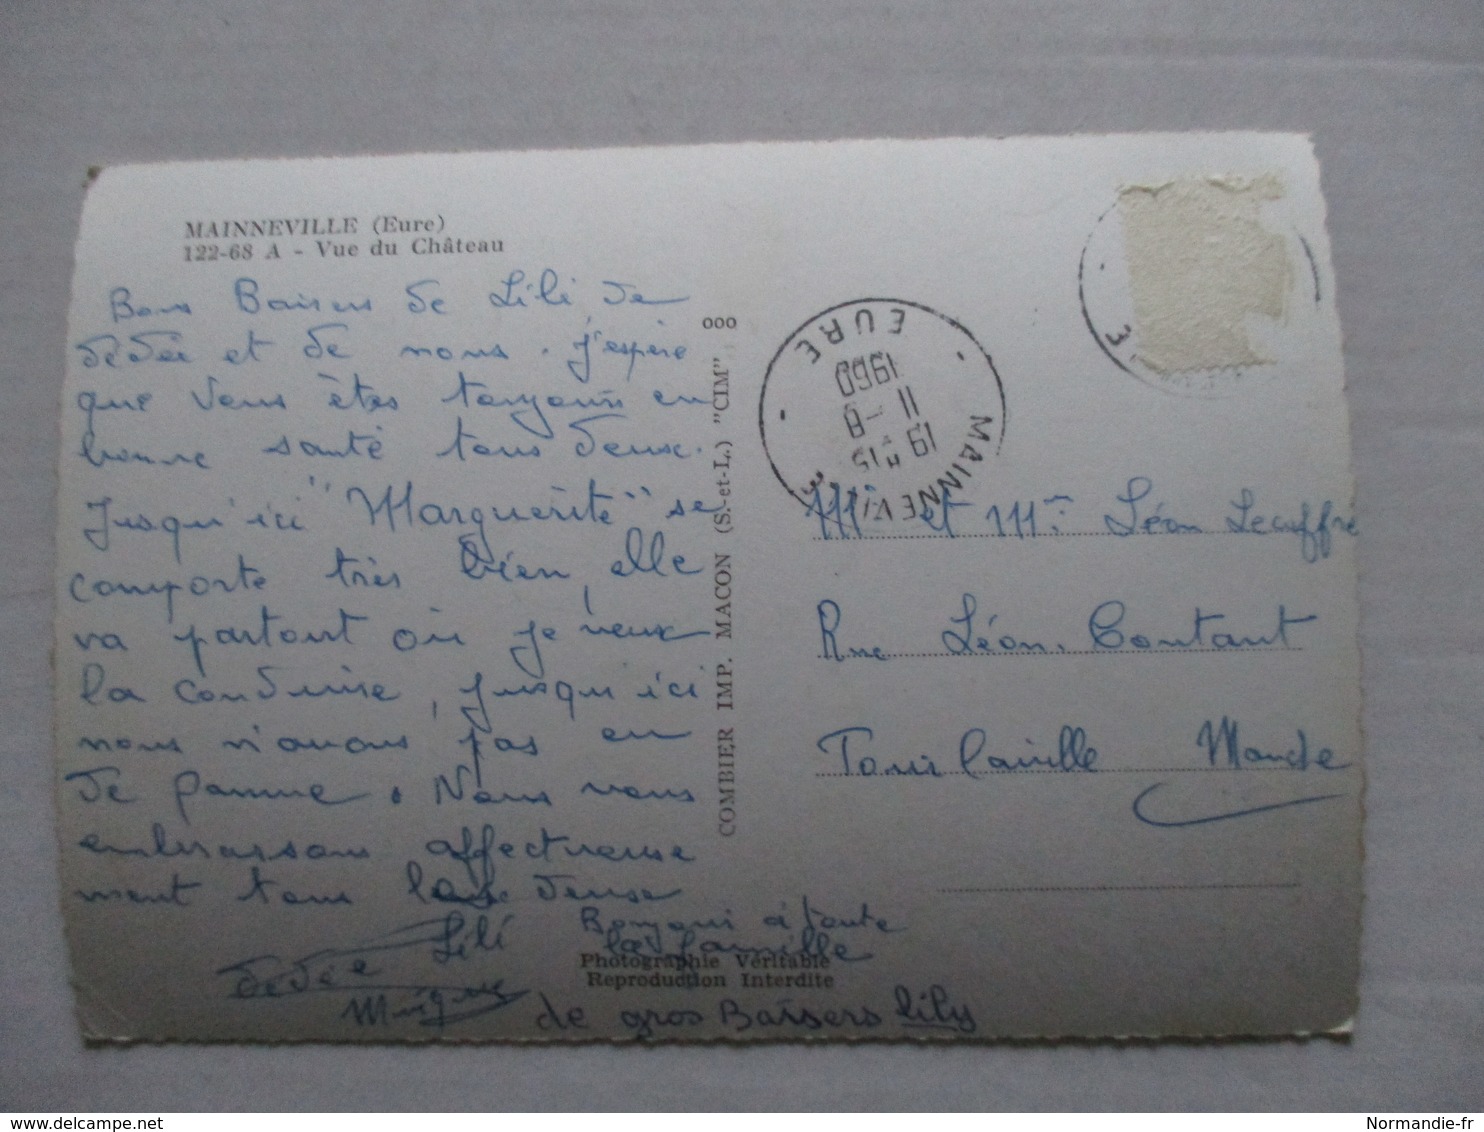 MAINNEVILLE (Eure)
122-68 A - Vue du Château
Bons Baisers de Lili de
dédée et de nous. J'espère
que Vous êtes toujours en
bonne santé tous deux.
Jusqu'ici "Marguerite" se
comporte très bien, elle
va partout où je veux
la conduire, jusqu'ici
nous n'avons pas eu
de panne. Nous vous
embrassons affectueuse
ment tous les deux
Lili Bonjour à toute
la famille
dédée
de gros Baisers lily
Photographie Véritable
Reproduction Interdite
ooo
COMBIER IMP. MACON (S.-et-L.) "CIM"
MAINNEVILLE
EURE
19 H 15
11 -8
1960
Mr et Mme Léon Lecuffre
Rue Léon. Coutant
Tourlaville Manche
www.delcampe.net
Normandie-fr